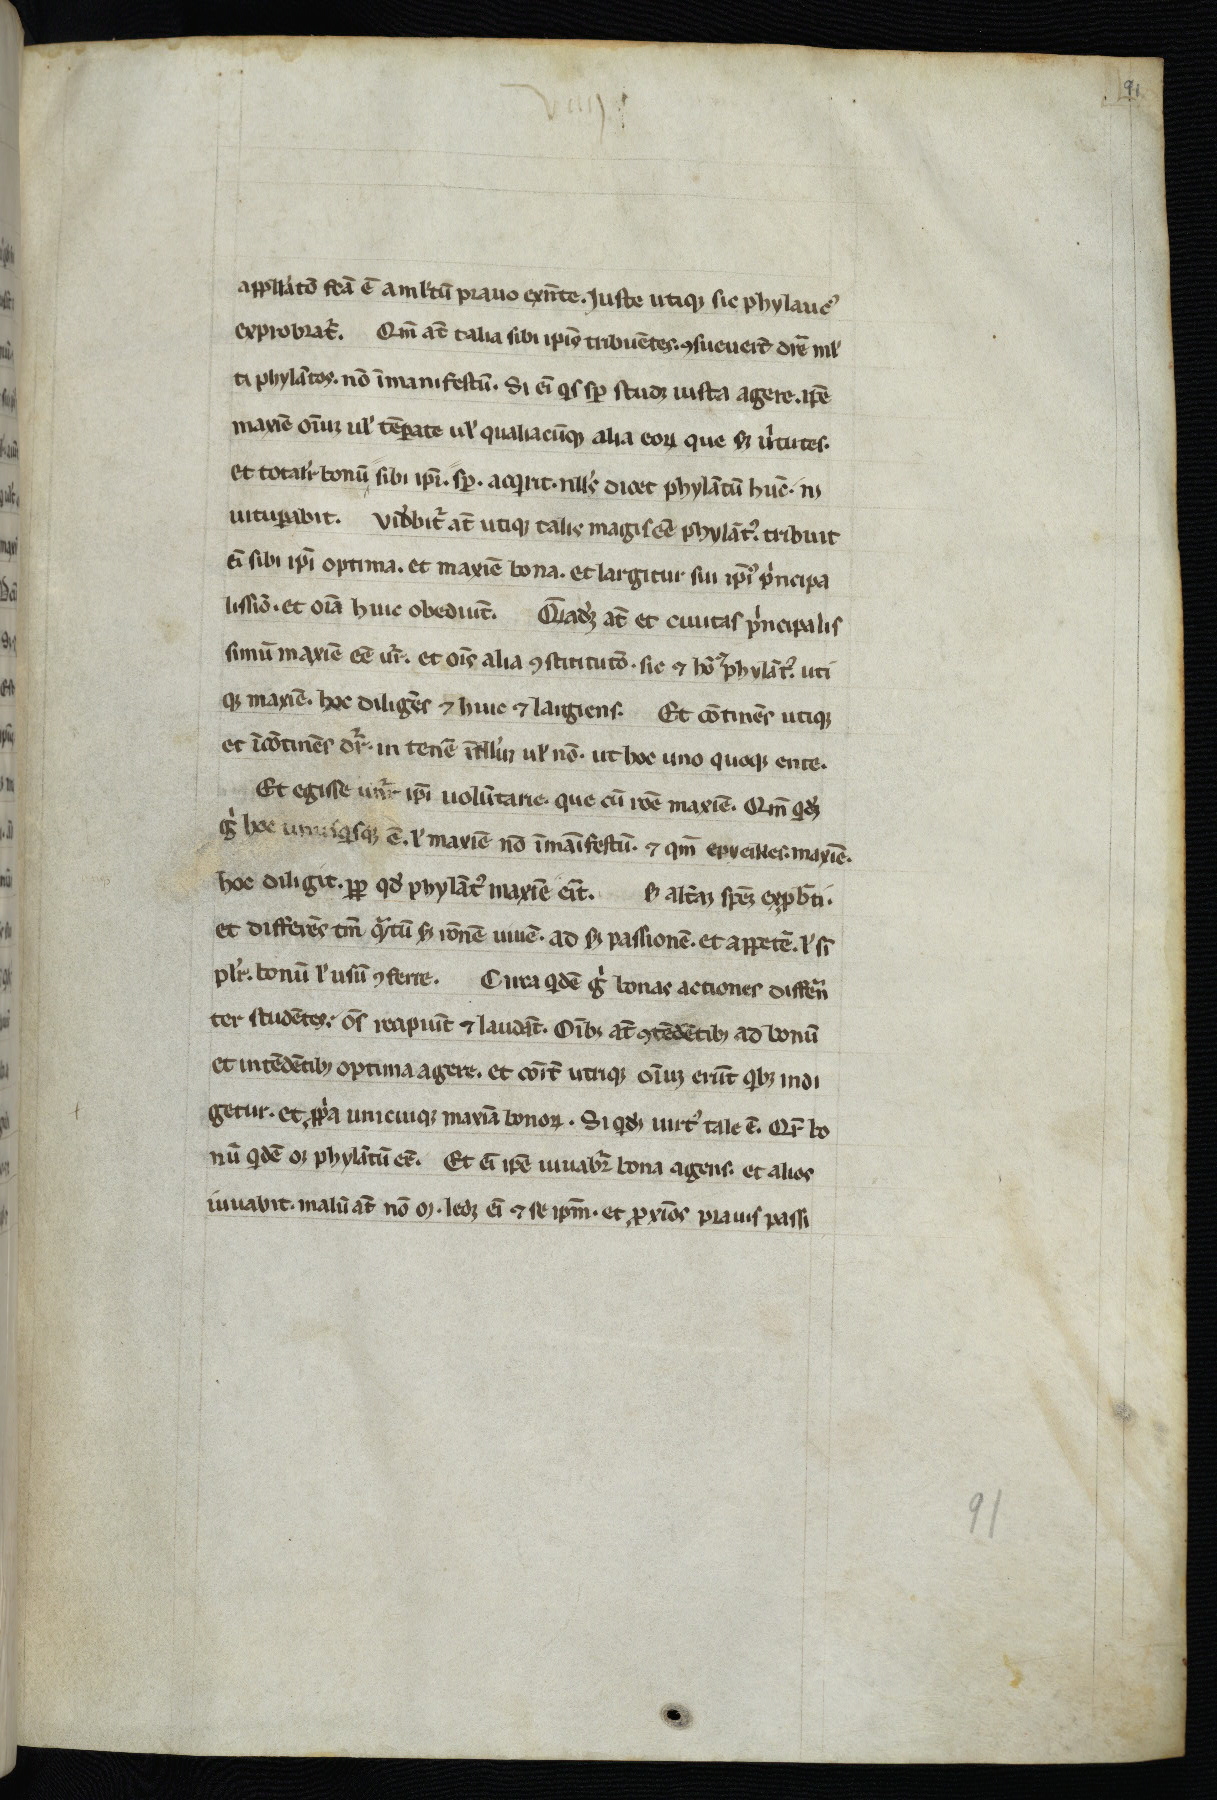 91
appllatō fcā ē a ml'tū prauo exn̄te. Juste utiqꝫ sic phylaueꝰ
exprobrat᷑. Qm̄ at̄ talia sibi ipīs tribuētes. ꝯsueuert̄ dr̄e ml'
ti phylātos. nō īmanifestū. Si eī qͥs sꝑ studꝫ iusta agere. ip̄e
maxīe oīuꝫ ul' tēꝑate ul' qualiacūqꝫ alia eoꝝ que sꝫ ũtutes.
et totalr̄ bonū sibi ipī. sꝑ. acqͥrit. nlls̄ dicet phylātū hūc. nꝫ
uituꝑabit. Vidēbit᷑ at̄ utiqꝫ talis magis eē phylātꝰ. tribuit
eī sibi ipī optima. et maxīe bona. et largitur sui ipīꝰ pͥncipa
lissīo. et oīa huic obediūt. Qͣadꝫ at̄ et ciuitas pͥncipalis
simū maxīe eē ur̄. et oīs alia ꝯstitutō. sic ⁊ hō phylātꝰ. uti
qꝫ maxīe. hoc diligēs ⁊ huic ⁊ largiens. Et cōtinēs utiqꝫ
et īcōtinēs dr̄. in tenē ītllūꝫ ul' nō. ut hoc uno quoqꝫ ente.
Et egisse ipī uolūtarie. que cū rōe maxīe. Qm̄ qͥdꝫ
gͥ hoc unusqͥsqꝫ ē. l' maxīe nō īmāifestū. ⁊ qm̄ epyeikes. maxīe.
hoc diligit. ꝓp qd' phylātꝰ maxīe eit̄. sꝫ altāꝫ spēꝫ exp̱b̄ti.
et differēs tm̄ qͣtū sꝫ rōnē uiuē. ad sꝫ passionē. et appetē. l' si
plr̄. bonū l' usū ꝯferre. Circa qͥdē gͥ bonas actiones differn̄
ter studētes. oēs recipiūt ⁊ laudāt. Oībꝫ at̄ ꝯtēdētibꝫ ad bonū
et intēdētibꝫ optima agere. et cōīt̄ utiqꝫ oīuꝫ erūt qͥbꝫ indi
getur. et ꝓpͥa unicuiqꝫ maxīa bonoꝝ. Si qͥdꝫ uirtꝰ tale ē. Qr̄ bo
nū qͥdē oꝫ phylātū eē. Et eī ip̄e iuuabr̄ bona agens. et alios
iuuabit. malū at̄ nō oꝫ. ledꝫ eī ⁊ se ipm̄. et ꝓxīos prauis passi
91